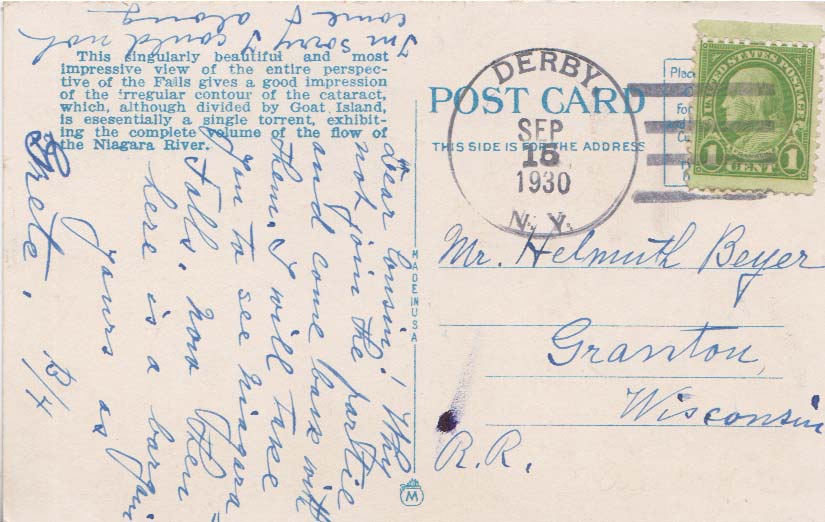 This singularly beautiful and most
impressive view of the entire perspec-
tive of the Falls gives a good impression
of the irregular contour of the cataract,
which, although divided by Goat Island,
is esesentially a single torrent, exhibit-
ing the complete volume of the flow of
the Niagara River.
POST CARD
THIS SIDE IS FOR THE ADDRESS
DERBY,
SEP
15
1930
N. Y.
Place
UNITED STATES POSTAGE
1 CENT 1
Mr. Helmuth Beyer
Granton,
Wisconsin
R.R.
MADE IN U S A
M
Dear Cousin! Why
not join the partie
and come back with
them. I will take
you to see Niagara
Falls. Now then
here is a bargain
yours as
Grete.
I'm sorry I could not
come along